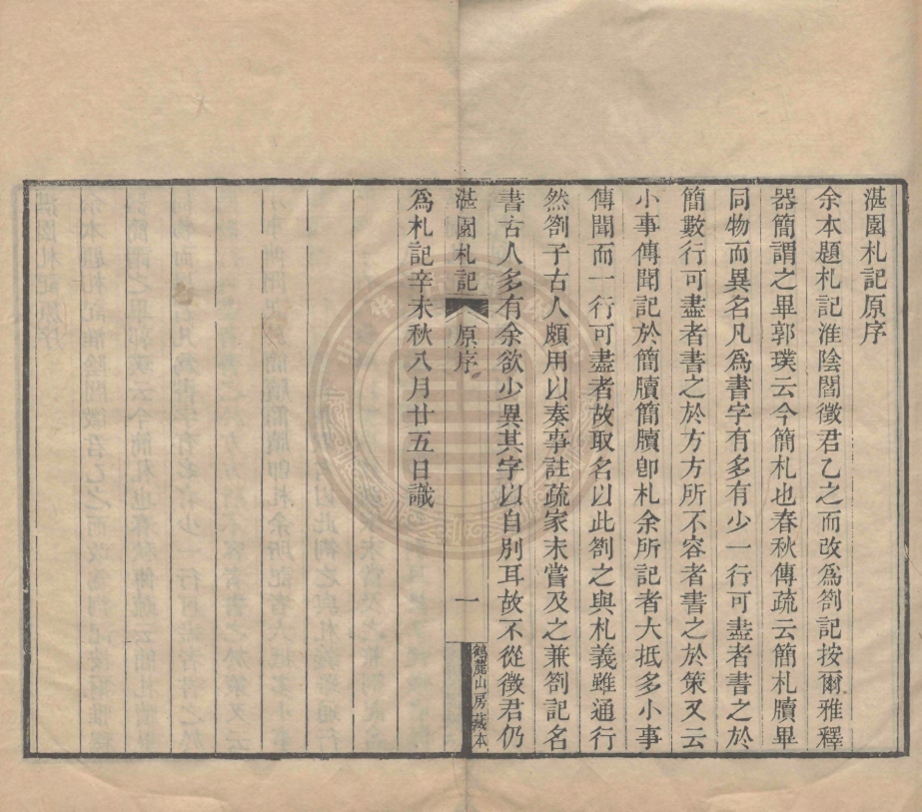 湛園札記原序
余本題札記淮陰閻徵君乙之而改爲劄記按爾雅釋
器簡謂之畢郭璞云今簡札也春秋傳疏云簡札牘畢
同物而異名凡爲書字有多有少一行可盡者書之於
簡數行可盡者書之於方方所不容者書之於策又云
小事傳聞記於簡牘簡牘卽札余所記者大抵多小事
傳聞而一行可盡者故取名以此劄之與札義雖通行
然劄子古人頗用以奏事註疏家未嘗及之兼劄記名
書古人多有余欲少異其字以自別耳故不從徵君仍
湛園札記
原序
一
鶴麓山房藏本
爲札記辛未秋八月廿五日識